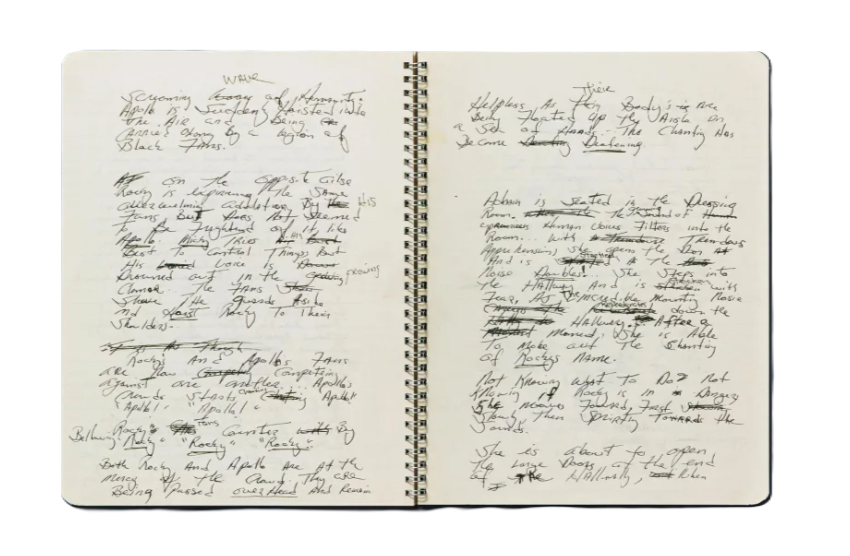 wave
Screaming of Humanity.
Apollo is Suddenly Hoisted into
The Air and Being
Carried Along By a legion of
Black Fans.
on the opposite Side
Rocky is experiencing the Same
overwhelming Adulation By His
Fans, But Does Not Seemed
To Be Frightened of it, like
Apollo. Mickey Tries His
Best To Control Things But
His voice is
Drowned out in the growing
Clamor. The Fans
Shove The guards Aside
and Hoist Rocky To Their
Shoulders.
Rocky's And Apollo's Fans
are Now Competing
against one another... Apollo's
Crowds Starts Chanting Apollo"
"Apollo!" "Apollo"
Rocky's Fans Counter By
Bellowing "Rocky" "Rocky" "Rocky".
Both Rocky And Apollo are At the
mercy of the Crowd. They are
Being Passed over Head And Remain
Helpless As Their Body's are
Being Floated Up the Aisle on
a Sea of Hands. The Chanting Has
Become Deafening.
Adrian is Seated in the Dressing
Room. The Sound of
Human Voices Filters into the
Room... With Tremendous
Apprehension, She opens the Door
And is the
Noise Doubles. She Steps into
the Hallway And is with
Fear. The incredible Mounting Noise
down the
Hallway. After a
Moment, She is Able
To Make out The Chanting
of Rocky's Name.
Not Knowing What to Do Not
Knowing if Rocky is in Danger
She moves Forward, First
Slowly Then Sprintly Towards the
Sounds.
She is about to open
The Large Doors at the end
of the Hallway, When